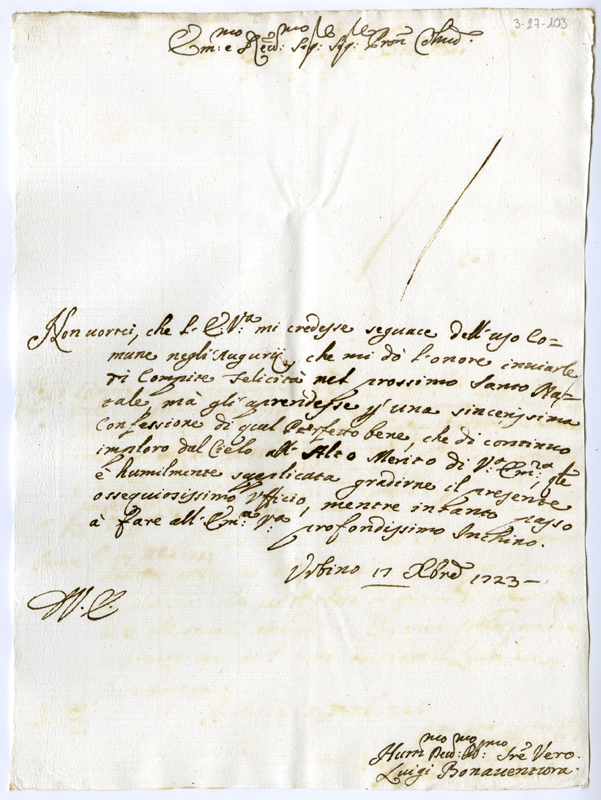 3-27-103
Em:mo e Reu:mo Sig: Sig: Pron Colmo:
Non uorrei, che l'E.Va: mi credesse seguace dell'uso Co=
mune negli Augurij, che mi dò l'onore inuiarle
di Compite felicità nel prossimo Santo Na=
tale, mà gl'aprendesse p una sincerissima
Confessione di qual Perfetto bene, che di continuo
imploro dal Cielo all'Alto Merito di Va: Em:za, che
è humilmente supplicata gradirne il presente
ossequiosissimo Vfficio, mentre intanto passo
à fare all'Em:a Va: profondissimo Inchino.
Vrbino 17 Xbre 1723 —
V.E.
Hummo Deu:mo Ob:mo Sre Vero.
Luigi Bonauentura.